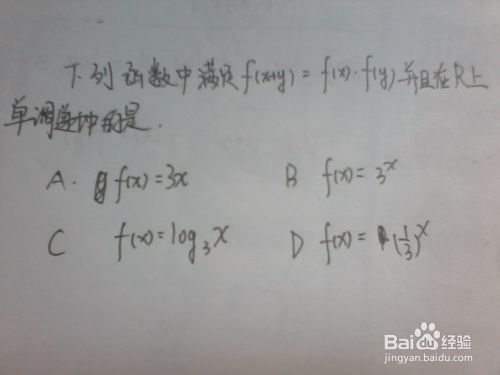 下列函数中满足f(x+y)=f(x)·f(y)并且在R上
单调递增的是.
A. f(x)=3x B f(x)=3^x
C f(x)=log₃x D f(x)=(1/3)^x
Baidu经验
jingyan.baidu.com